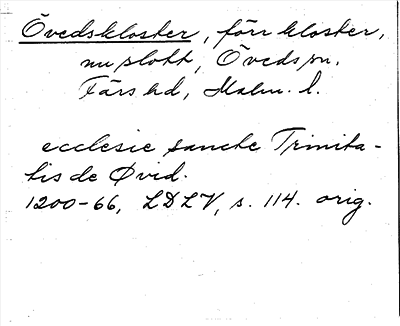 Övedskloster, förr kloster,
nu slott, Öveds sn.
Färs hd, Malm. l.
ecclesie sancte Trinita-
tis de Øvid.
1200-66, LDLV, s. 114. orig.